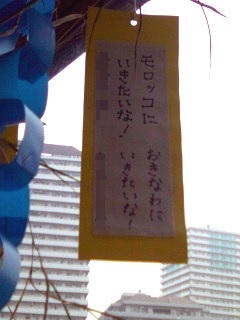 モロッコに
いきたいな!
おきなわに
いきたいな!